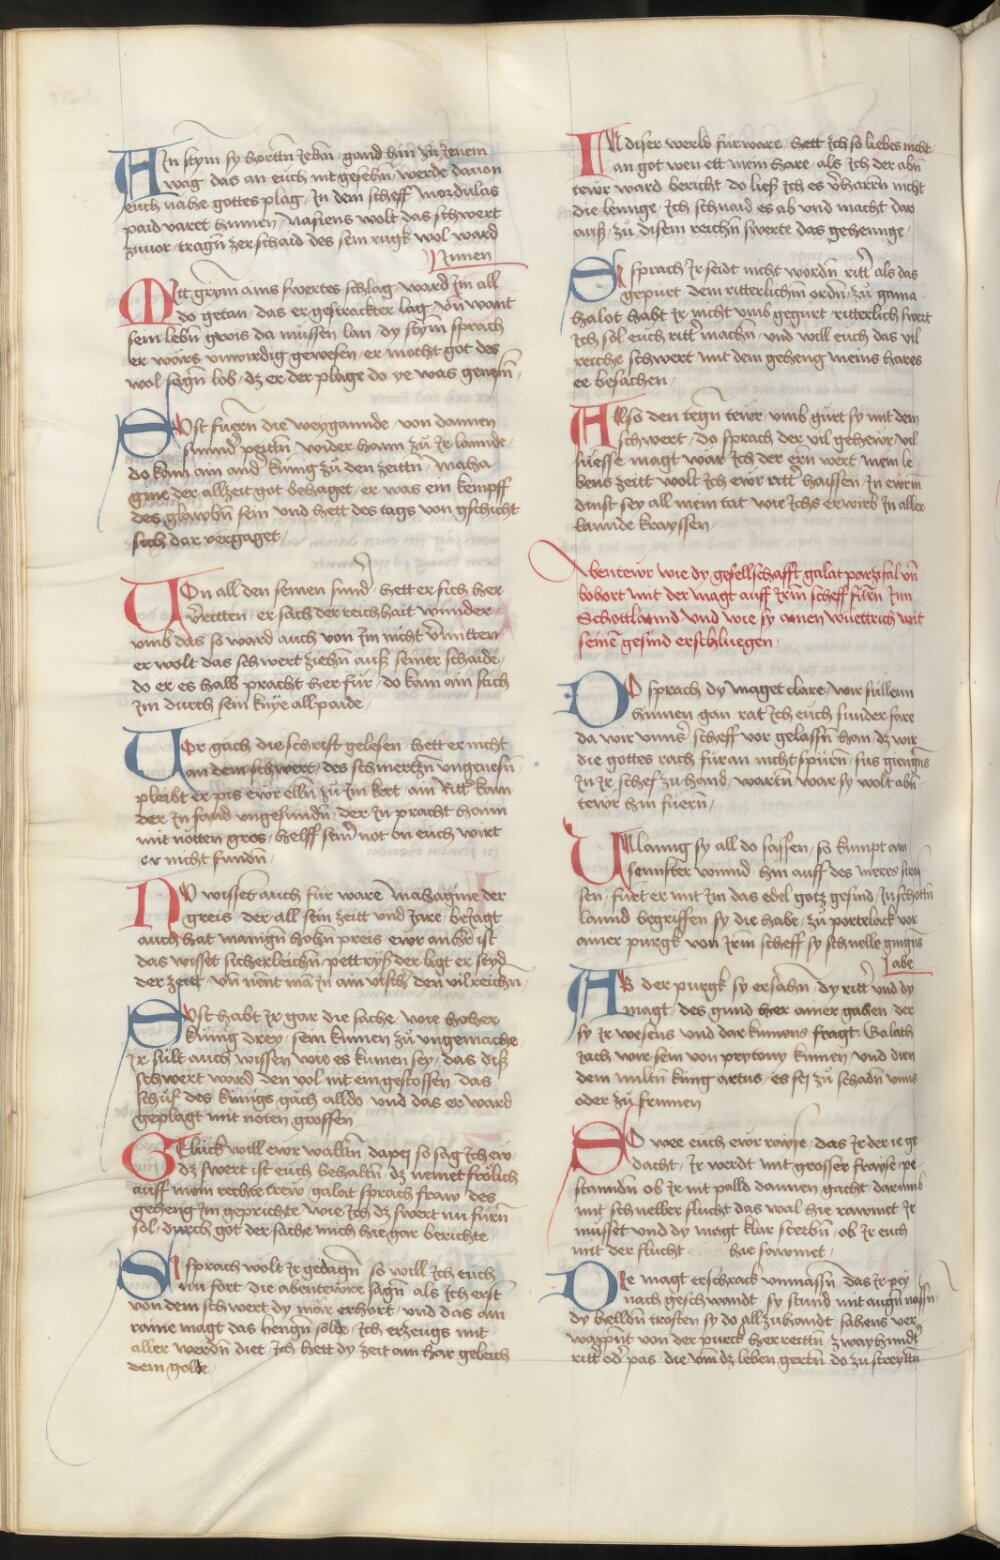 Ain stym sy hortn̄ Jehn̄ / gand hin zu Jenem
wag das an euch nit geschn̄ / werde dauon
euch nahe gottes plag / In dem scheff mordulas
paid varet hinnen / Nasiens wolt das schwert
zuuor tragn̄ zerschaid des sein rugk wol ward
Jnnen
Mit grym ains swertes schlag / ward Im all
do getan / das er gestracker lag / vn̄ want
sein lebn̄ gwis da müssen lan / dy stym sprach
er wärs vnwirdig gewesen / er mocht got des
wol sagn̄ lob / dz er der plage do ye was genesn̄
Sust fuern̄ die weygannde / von dannen
sunnd̄ peittn̄ / wider haim zu Jr lannde /
do kam ain and̄ kunig zu den zeittn̄ / Maha
gine der allzeit got behaget / er was ein kempff
des glawbn̄ sein vnd hett des tags von gschicht
sich dar vergaget /
Von all den seinen sund̄ / hett er sich her
v̄ritten / er sach der reichhait wunnder
vmb das so ward auch von Im nicht v̄mitten
er wolt das schwert ziehn̄ auß seiner schaide /
do er es halb pracht her für / do kam ain stich
Im durch sein knye all paide /
Vor gäch die schrift gelesen hett er nicht
an dem schwert / des schmertzn̄ vngenesn̄
pleibt er pis ewr elln̄ zu Im kert / ain Ritt̄ kam
der In fand vngesundn̄ / der In pracht haim
mit nötten gros / helff sein̄ not on euch wirt
er nicht fundn̄ /
Nu wisset auch für ware Mahagine der
greis / der all sein zeitt vnd Jare beJagt
auch hat manign̄ hohn̄ preis ewr anher̄ ist
das wisset sicherleichn̄ / pettryß der ligt er seyd
der zeitt / vn̄ nent man In ain visch̄ den vil reichn̄
Sust habt Jr gar die sache / wie hoher
kunig drey / sein kumen zu vngemache
Jr sült auch wissen wie es kumen sey / das diß
schwert ward den vol nit ein gestossen / das
schuf des kunigs gäch alldo / vnd das er ward
geplagt mit nöten grossen
Glück will ewr waltn̄ / dapey so sag Ich ew
dz swert ist euch behaltn̄ / dz nemet frölich
auff mein rechte trew / galat sprach fraw des
geheng Im geprichte / wie Ich dz swert nu fürn̄
sol / durch got der sache mich hie gar berichte /
Si sprach wolt Jr gedagn̄ / so will Ich euch
nu fort die abentewre sagn̄ / als Ich erst
von dem schwert dy mär erhort / vnd das ain
raine magt das hengn̄ solde / Ich erzeugs mit
aller werdn̄ diet / Ich hett dy zeit ain har geleich
dem golde
In diser werld fürware / hett Ich so liebes nicht
an got wen ett mein hare / als Ich der abn̄
tewr ward bericht / do ließ Ich es v̄harrn̄ nicht
die lennge / Ich schnaid es ab vnd macht dar
auß / zu disem reichn̄ swerte das gehennge /
Si sprach Jr seidt nicht wordn̄ ritt̄ als das
gepürt dem ritterlichn̄ ordn̄ / zu gama
halot habt Jr nicht vmb gegurt ritterlich swert
Ich sol euch ritt̄ machn̄ / vnd will euch das vil
reiche schwert mit dem geheng meins hares
ee besachen /
Also den tegn̄ tewr / vmb gürt sy mit dem
schwert / do sprach der vil gehewr / vil
suesse magt war Ich der ern̄ wert mein le
bens zeitt wolt Ich ewr ritt̄ haissen / In ewrm
dinst sey all mein tat wie Ichs erwirb In aller
lannde krayssen /
Abentewr wie dy gesellschafft galat parzifal vn̄
bohort mit der magt auff Irm scheff fürn̄ Inn
Schottlannd / vnd wie sy ainen wüettrich mit
seinē gesind erschluegen /
Do sprach dy maget clare / wir süllenn
hinnen gan / rat Ich euch sunder fare
da wir vnns̄ scheff vor gelassn̄ han / dz wir
die gottes rach füran nicht spürn̄ / sus giengn̄s
In Jr schef zu hand / wartn̄ war sy wolt abn̄
tewr hin fuern̄ /
Vnlanng sy all do sassen / so kumpt ain
sennfter wind / hin auff des meres stras
sen / fürt er mit Im das edel gotz gesind / In schottn̄
lannd begriffen sy die habe / zu portelack vor
ainer purgk von Irm scheff sy schnelle gingn̄s
abe
Ab der purgk sy ersahn̄ / dy ritt̄ vnd dy
magt / des gund her ainer gahen der
sy Jr wesens vnd dar kumens fragt / Galath
Jach wir sein von prytony kumen / vnd dien
dem miltn̄ kunig artus / es sej zu schadn̄ vnns
oder zu frumen
So wee euch ewr rayse / das Jr der ie ge
dacht / Jr werdt mit grosser frayse pe
stanndn̄ ob Jr nit palld dannen gacht / darumb
mit schneller flucht das wal hie rawmet Jr
müsset vnd dy magt klar sterbn̄ / ob Jr euch
mit der flucht hie sawmet /
Die magt erschrack vnmassn̄ / das Jr pey
nach geschwandt / sy stund mit augn̄ nassn̄ /
dy helldn̄ trosten sy do all zuhandt / sahens ver
wappnt von der purck her reittn̄ / zway hundt̄
ritt̄ od̄ pas / die vm̄ dz leben gertn̄ do zu streyttn̄